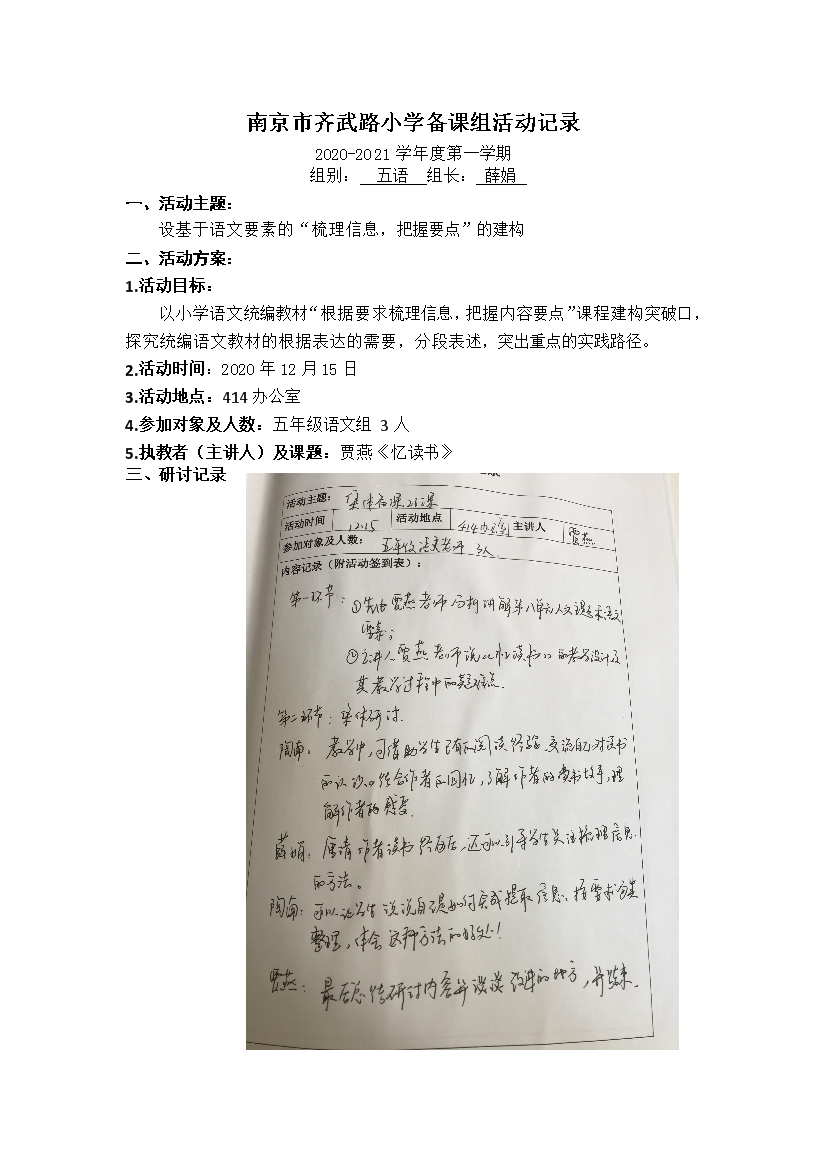 南京市齐武路小学备课组活动记录
2020-2021 学年度第一学期
组别： 五语 组长： 薛娟
一、活动主题：
设基于语文要素的“梳理信息，把握要点”的建构
二、活动方案：
1.活动目标：
以小学语文统编教材“根据要求梳理信息，把握内容要点”课程建构突破口，
探究统编语文教材的根据表达的需要，分段表述，突出重点的实践路径。
2.活动时间：2020 年 12 月 15 日
3.活动地点：414 办公室
4.参加对象及人数：五年级语文组 3 人
5.执教者（主讲人）及课题：贾燕《忆读书》
三、研讨记录
活动主题： 集体备课 26课
活动时间 12.15 活动地点 414办公室 主讲人 贾燕
参加对象及人数： 五年级语文老师 3人
内容记录（附活动签到表）：
第一环节：①先由贾燕老师分析讲解第八单元人文主题和语文
要素；
②主讲人贾燕老师说《忆读书》的教学设计及
其教学过程中的疑难点.
第二环节：集体研讨.
陶南： 教学中，可借助学生已有的阅读经验，交流自己对读书
的认识。结合作者的回忆，了解作者的读书故事，理
解作者的感受.
薛娟：厘清作者读书经历后，还可以引导学生关注梳理信息
的方法。
陶南：可以让学生说说自己是如何完成提取信息、按要求分类
整理，体会这种方法的好处！
贾燕：最后总结研讨内容并谈谈改进的地方，并结束.